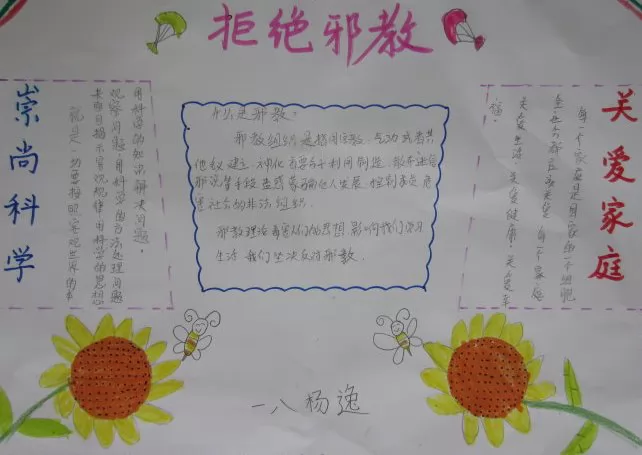 拒绝邪教
崇尚科学
用科学的知识解决问题。
观察问题用科学的方法处理问题
用科学的思想
就是一切要按照客观世界的
什么是邪教:
邪教组织是指冒用宗教、气功或者其
他名义建立,神化首要分子利用制造、散布迷信
邪说等手段蛊惑蒙骗他人发展、控制成员危
害社会的非法组织。
邪教理论毒害我们的思想影响我们的
生活我们坚决反对邪教。
关爱家庭
每一个家庭是国家的一个细胞
关爱生活、关爱健康、关爱
福。
一八杨逸